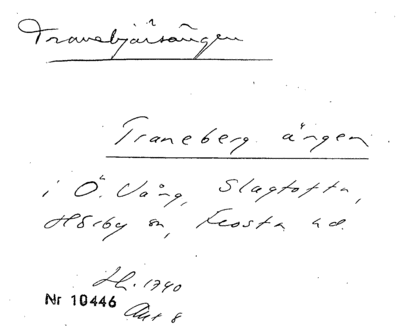 Tranebjärsängen
Traneberg ängen
i Ö. Vång, Slagtofta,
Hörby sn, Frosta hd.
Lh. 1740
Nr 10446
Akt 8